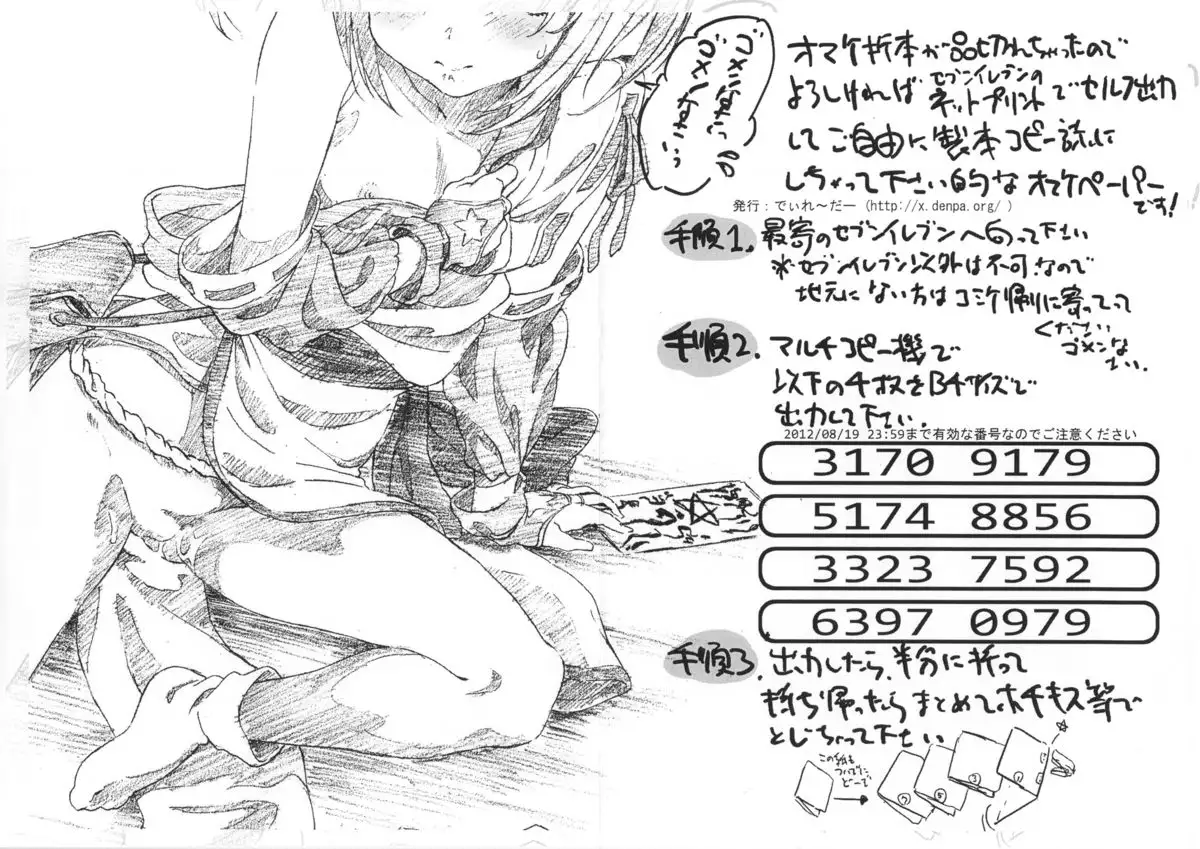 ゴメンなさいっ
ゴメンなさいっ
オマケ折本が品切れちゃったので
よろしければセブンイレブンの
ネットプリントでセルフ出力
してご自由に製本コピー誌に
しちゃって下さい的なオマケペーパー
です!
発行:でぃれ~だー (http://x.denpa.org/ )
手順1. 最寄のセブンイレブンへ向って下さい
※セブンイレブン以外は不可なので
地元にない方はコミケ帰りに寄ってって
ください
ゴメンな
さい.
手順2. マルチコピー機で
以下の4枚をB4サイズで
出力して下さい.
2012/08/19 23:59まで有効な番号なのでご注意ください
3170 9179
5174 8856
3323 7592
6397 0979
手順3. 出力したら、半分に折って
持ち帰ったらまとめてホチキス等で
とじちゃって下さい
この紙も
ついでに
どーぞ